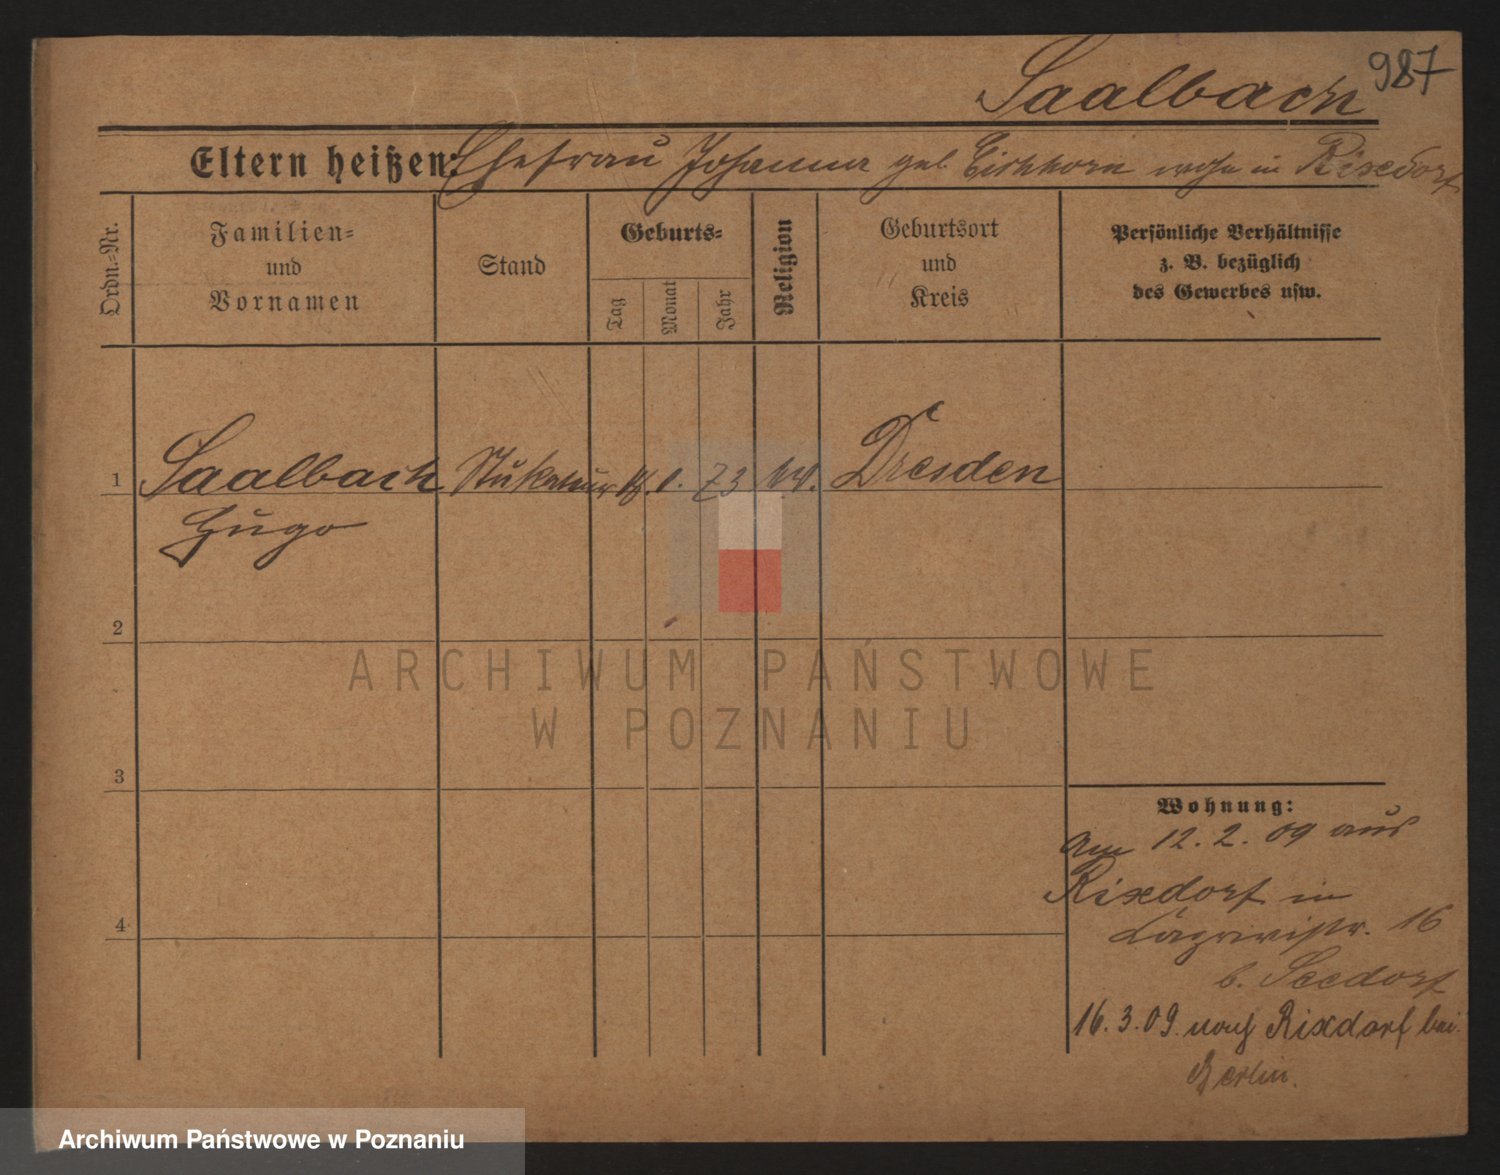 987
Saalbach
Eltern heißen: Ehefrau Johanna geb. Eichhorn wohn. in Rixdorf
Ordn.=Nr.
Familien=
und
Vornamen
Stand
Geburts=
Tag
Monat
Jahr
Religion
Geburtsort
und
Kreis
Persönliche Verhältnisse
z. B. bezüglich
des Gewerbes usw.
1 Saalbach Stukateur 73 Dresden
Hugo
2
3
4
Wohnung:
Am 12. 2. 09 aus
Rixdorf in
16
b. Seedorf
16. 3. 09. nach Rixdorf bei
Berlin.
ARCHIWUM PAŃSTWOWE
W POZNANIU
Archiwum Państwowe w Poznaniu